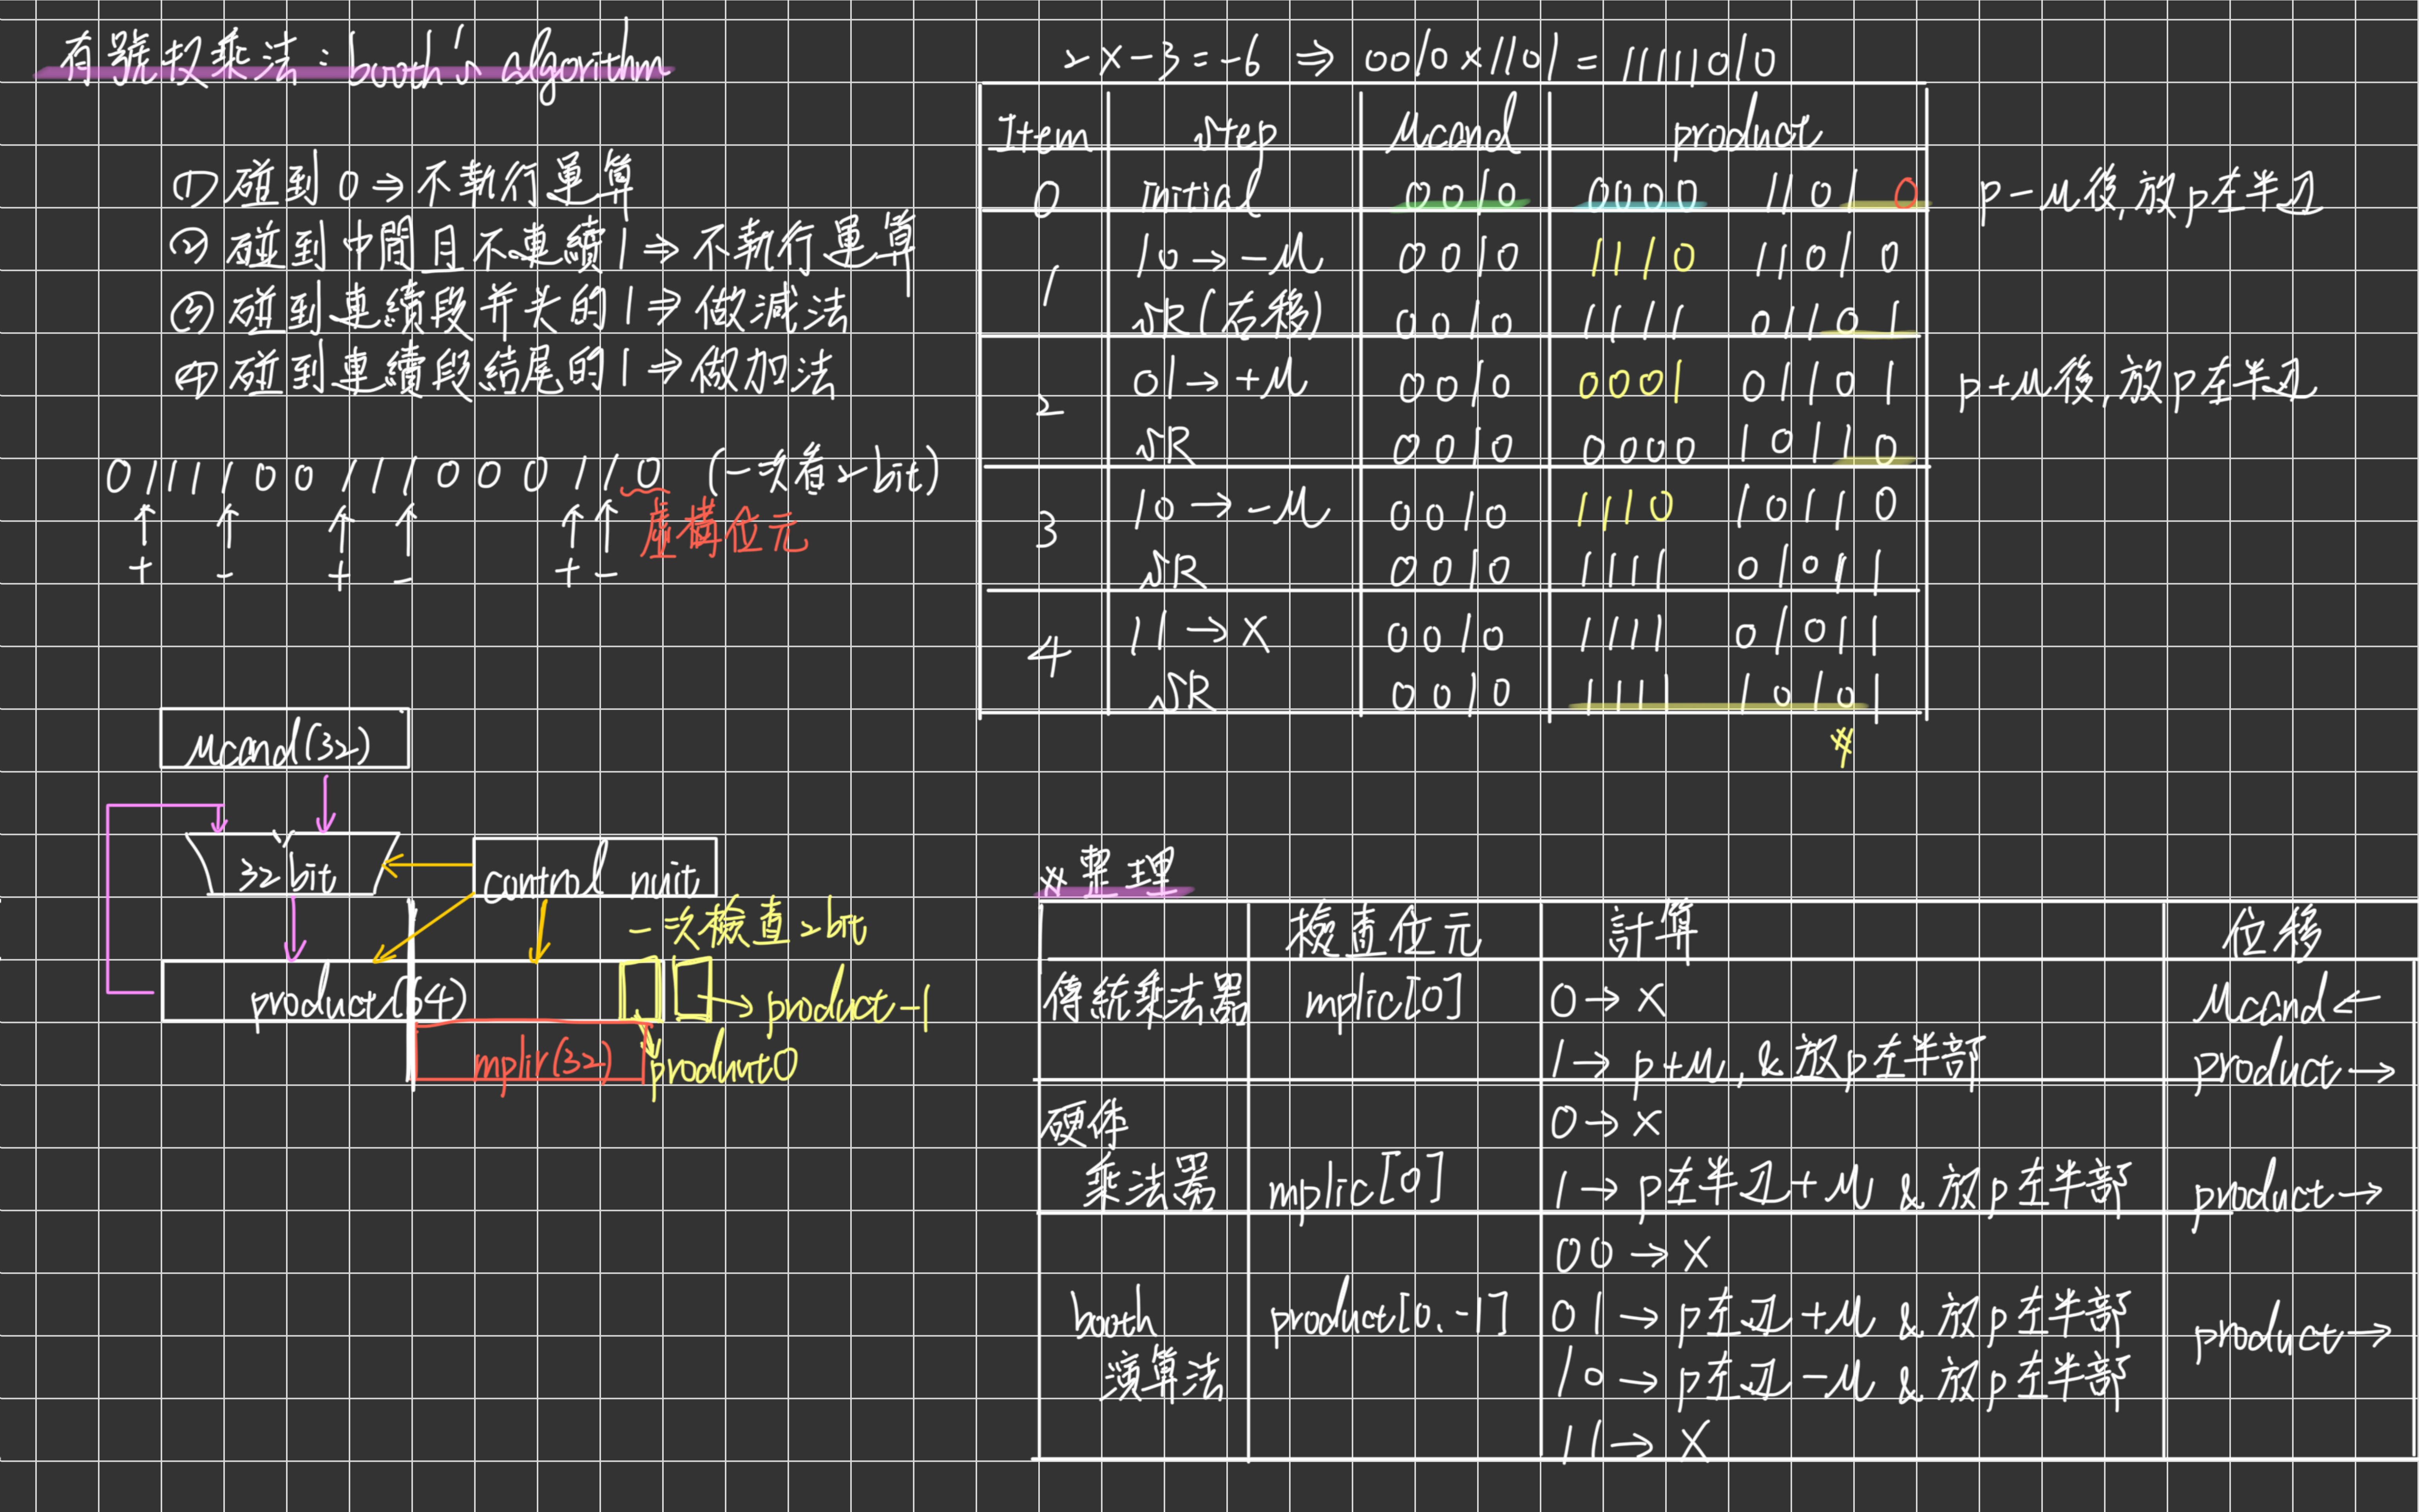 有號权乘法：booth's algorithm
① 碰到 0 ⇒ 不執行運算
② 碰到中間且不連續 1 ⇒ 不執行運算
③ 碰到連續段开头的 1 ⇒ 做減法
④ 碰到連續段結尾的 1 ⇒ 做加法
0 1 1 1 1 0 0 1 1 1 0 0 0 1 1 0 (一次看2bit)
↑ ↑ ↑ ↑ ↑ ↑ 虛構位元
+ - + - + -
Mcand(32)
32 bit
control nuit
一次檢查2bit
product(64)
→ product-1
mplir(32)
product0
2 x -3 = -6 ⇒ 0010 x 1101 = 11111010
Item Step Mcand product
0 Initial 0010 0000 1101 0 p-M後,放p左半边
1 10 → -M 0010 1110 1101 0
SR(右移) 0010 1111 0110 1
2 01 → +M 0010 0001 0110 1 p+M後,放p左半边
SR 0010 0000 1011 0
3 10 → -M 0010 1110 1011 0
SR 0010 1111 0101 1
4 11 → X 0010 1111 0101 1
SR 0010 1111 1010 1
#
#整理
檢查位元 計算 位移
傳統乘法器 mplic[0] 0 → X Mcand ←
1 → p+M, & 放p左半部 product →
硬体 0 → X
乘法器 mplic[0] 1 → p左半边+M & 放p左半部 product →
00 → X
booth product[0.-1] 01 → p左边+M & 放p左半部 product →
演算法 10 → p左边-M & 放p左半部
11 → X